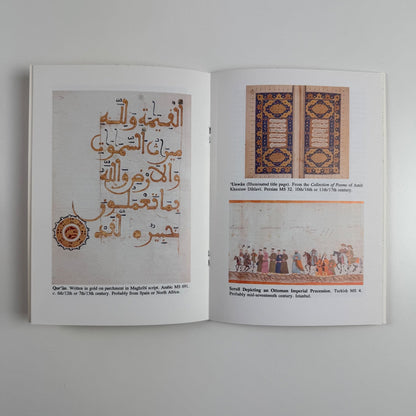 القيمة ولله
ميراث السموات
والارض والله
بما تعملون
خبير لقد
Qur'ān. Written in gold on parchment in Maghribi script. Arabic MS 691.
c. 6th/12th or 7th/13th century. Probably from Spain or North Africa.
'Unwān (Illuminated title page). From the Collection of Poems of Amīr
Khusraw Dihlavī. Persian MS 32. 10th/16th or 11th/17th century.
Scroll Depicting an Ottoman Imperial Procession. Turkish MS 4.
Probably mid-seventeenth century. Istanbul.